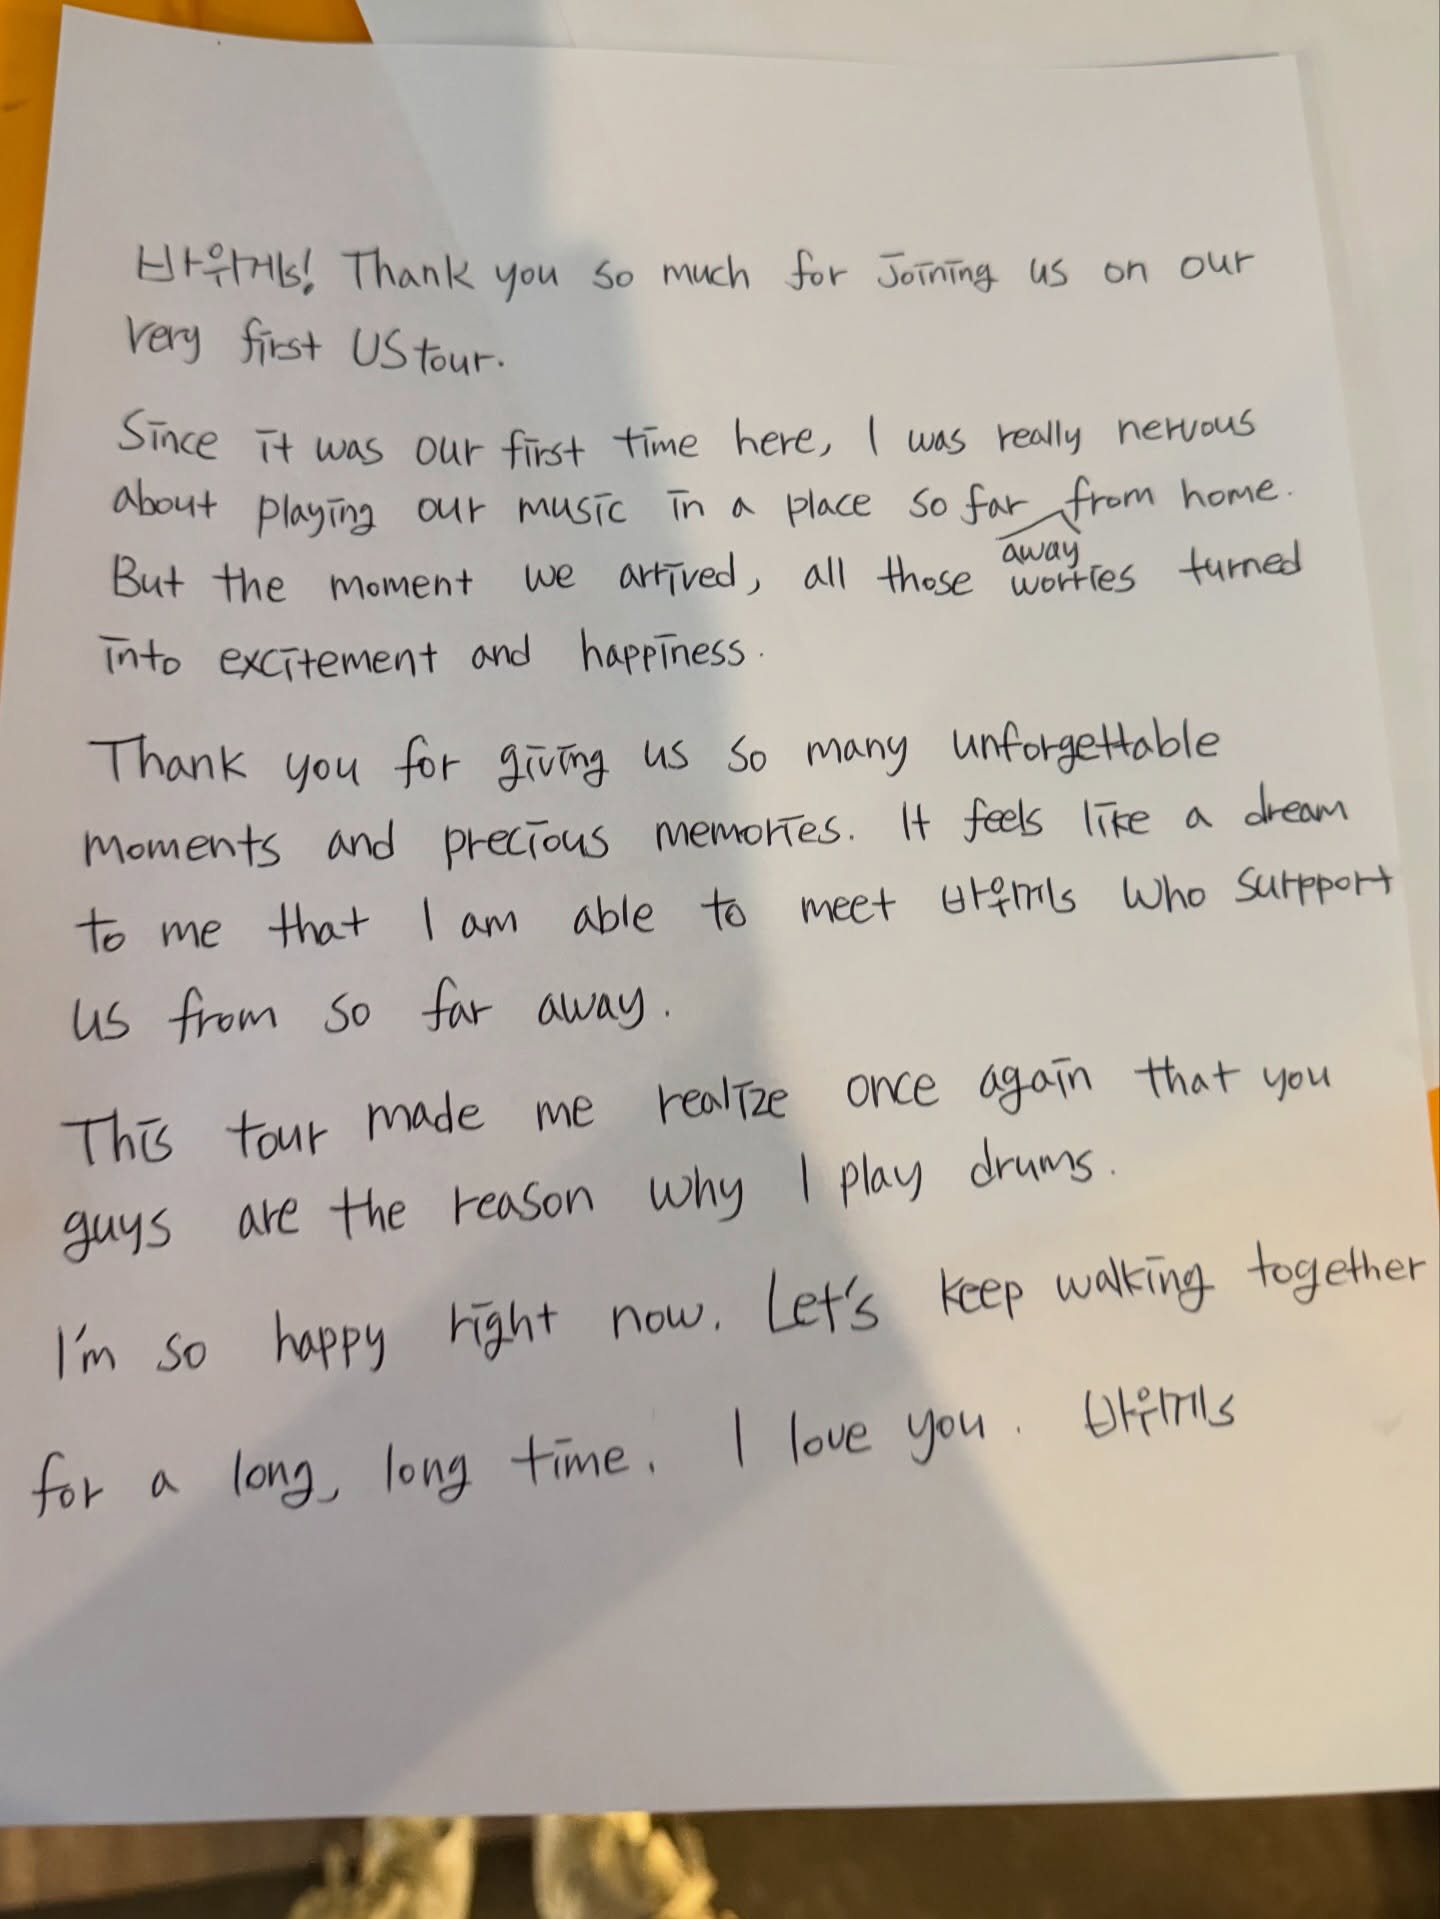 바위게들! Thank you so much for Joining us on our
very first US tour.
Since it was our first time here, I was really nervous
about playing our music in a place so far from home.
away
But the moment we arrived, all those worries turned
into excitement and happiness.
Thank you for giving us so many unforgettable
moments and precious memories. It feels like a dream
to me that I am able to meet 바위게s who surpport
us from so far away.
This tour made me realize once again that you
guys are the reason why I play drums.
I'm so happy right now. Let's keep walking together
for a long, long time. I love you. 바위게s